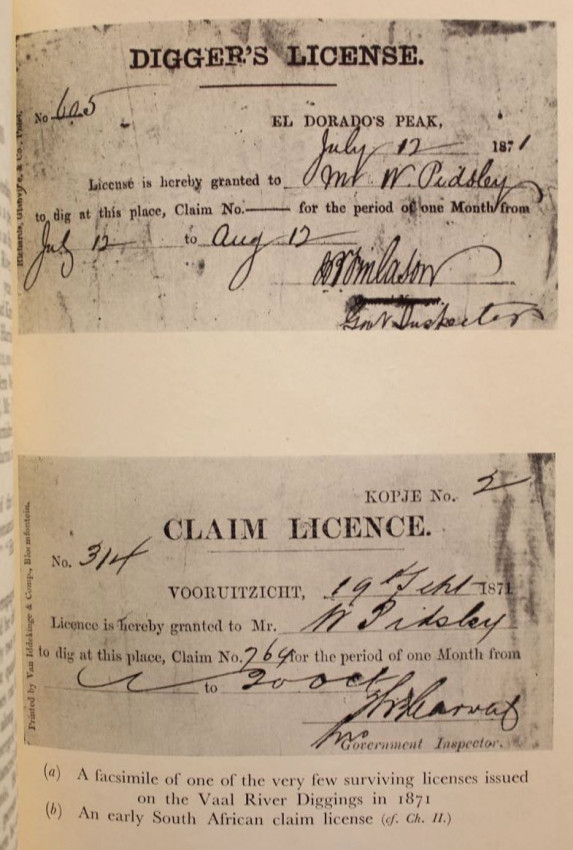 DIGGER'S LICENSE.
No 605
EL DORADO'S PEAK,
July 12 1871
License is hereby granted to Mr W. Pidsley
to dig at this place, Claim No. — for the period of one Month from
July 12 to Aug 12
Govt Inspector
KOPJE No. 2
CLAIM LICENCE.
No. 314
VOORUITZICHT, 19th Sept 1871
Licence is hereby granted to Mr. W Pidsley
to dig at this place, Claim No. 764 for the period of one Month from
to 20 Oct
Government Inspector.
Printed by Van Iddekinge & Comp., Bloemfontein.
(a) A facsimile of one of the very few surviving licenses issued
on the Vaal River Diggings in 1871
(b) An early South African claim license (cf. Ch. II.)